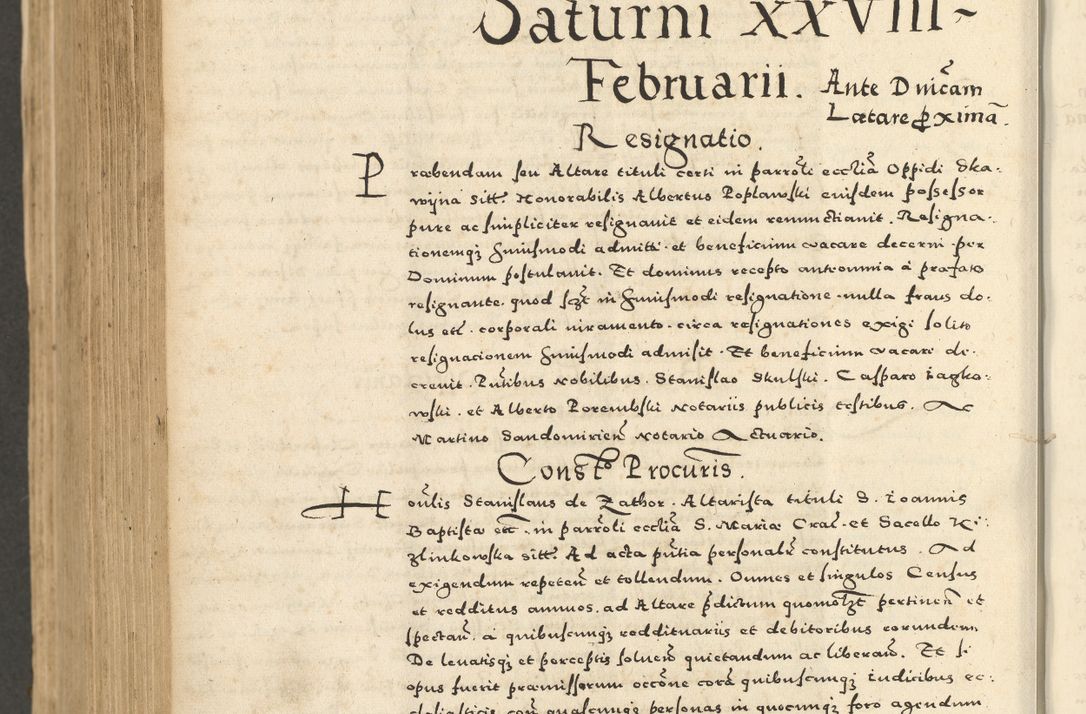 Saturni XXVIII
Februarii. Ante Dnĩcam
Lætare ꝓximã.
Resignatio.
Præbendam seu Altare tituli certi in parrõli ecclĩa Oppidi Ska-
wijna sitt̃. Honorabilis Albertus Poplawski eiusdem possessor
pure ac simpliciter resignauit et eidem renunctiauit. Resigna-
tionemqʒ huiusmodi admitti et beneficium vacare decerni per
Dominum postulauit. Et dominus recepto ante omnia à præfato
resignante. quod sczt̃ in huiusmodi resignatione nulla fraus do-
lus etc̃. corporali iuramento circa resignationes exigi solito
resignacionem huiusmodi admisit. Et beneficium vacare de-
creuit. Pñtibus Nobilibus. Stanislao Skulski. Casparo Łagko-
wski. et Alberto Porembski Notariis publicis testibus. Ac
Martino Sandomirieñ Notario Actuario.
Constõ Procuris̃.
Hoñlis Stanislaus de Zathor. Altarista tituli S. Ioannis
Baptista etc̃. in parrõli ecclĩa S. Mariæ Crac̃. et Sacello Ki-
zlinkowska sitt̃. Ad acta pñtia personalr̃ constitutus. Ad
exigendum repeteñ et tollendum. Omnes et singulos Census
et redditus annuos. ad Altare p̃dictum quomolzt̃ pertineñ et
spectañ. à quibuscunqʒ reddituariis et debitoribus eorundem
De leuatisqʒ et perceptis soluen̄ quietandum ac liberan̄. Et si
opus fuerit præmissorum occõne corã quibuscunqʒ iudicibus ec-
clesiasticis coñ quascunqʒ personas in quocunqʒ foro agendum